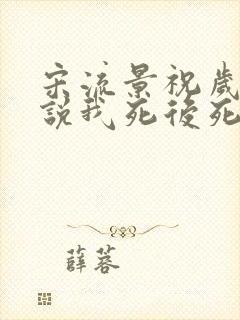 宋流景祝歲
說我死後死
薛蓉